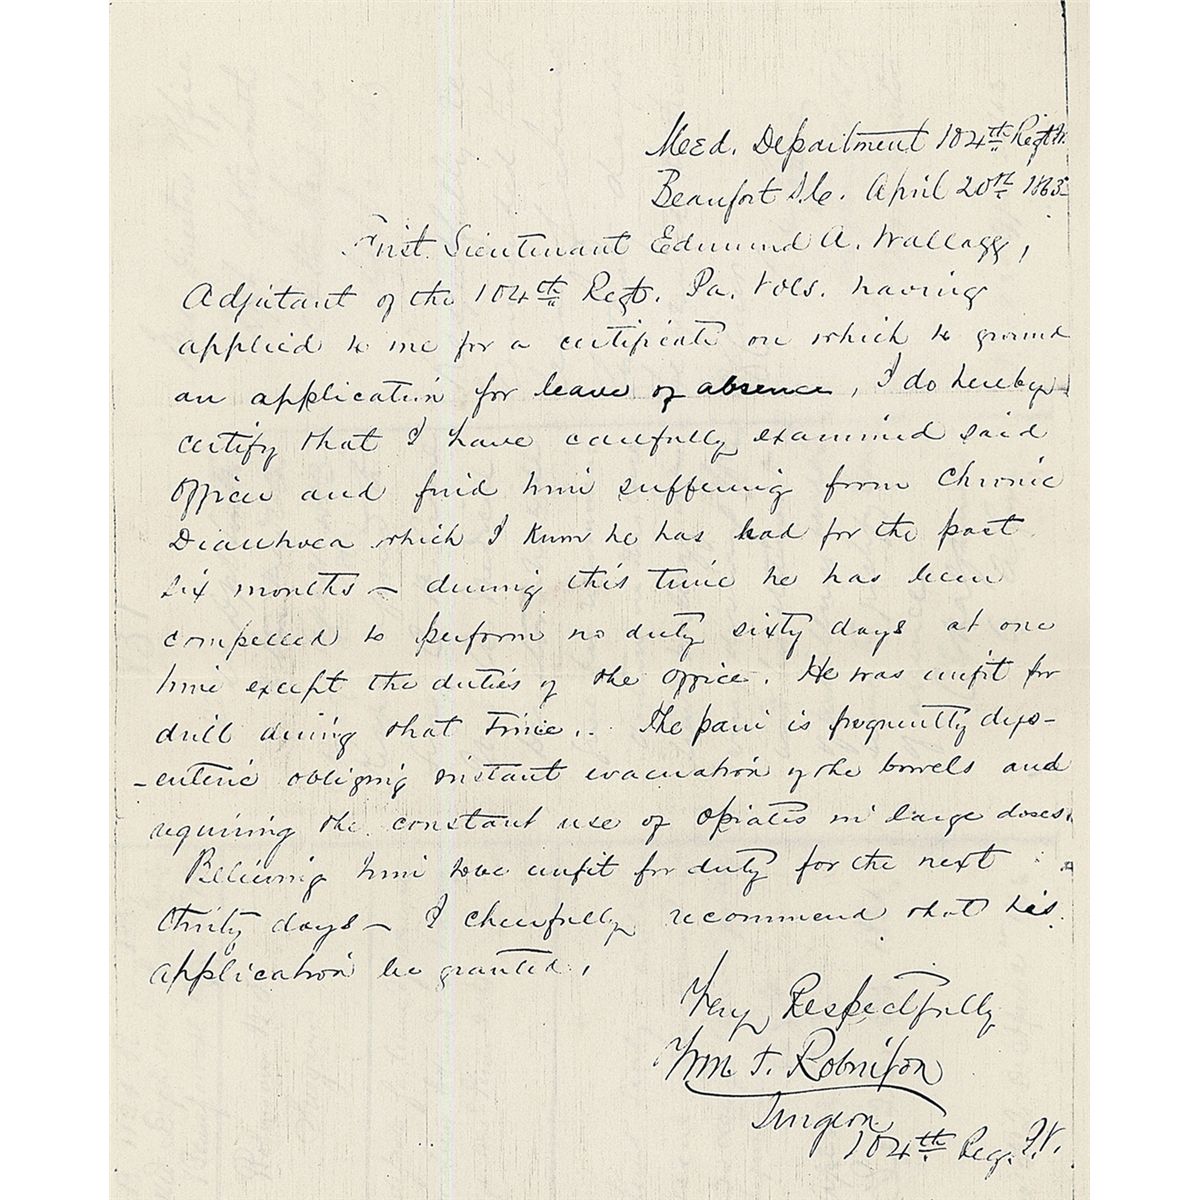 Med. Department 104th Regt
Beaufort S.C. April 20th 1863
First Lieutenant Edmund A. Wallazz,
Adjutant of the 104th Regt. Pa. Vols. having
applied to me for a certificate on which to ground
an application for leave of absence, I do hereby
certify that I have carefully examined said
officer and find him suffering from Chronic
Diarrhoea which I know he has had for the past
six months – during this time he has been
compelled to perform no duty sixty days at one
time except the duties of the office. He was unfit for
drill during that time. The pain is frequently dys-
-enteric obliging instant evacuation of the bowels and
requiring the constant use of opiates in large doses.
Believing him unfit for duty for the next
thirty days – I cheerfully recommend that his
application be granted.
Very Respectfully
Wm T. Robinson
Surgeon
104th Reg. P.V.